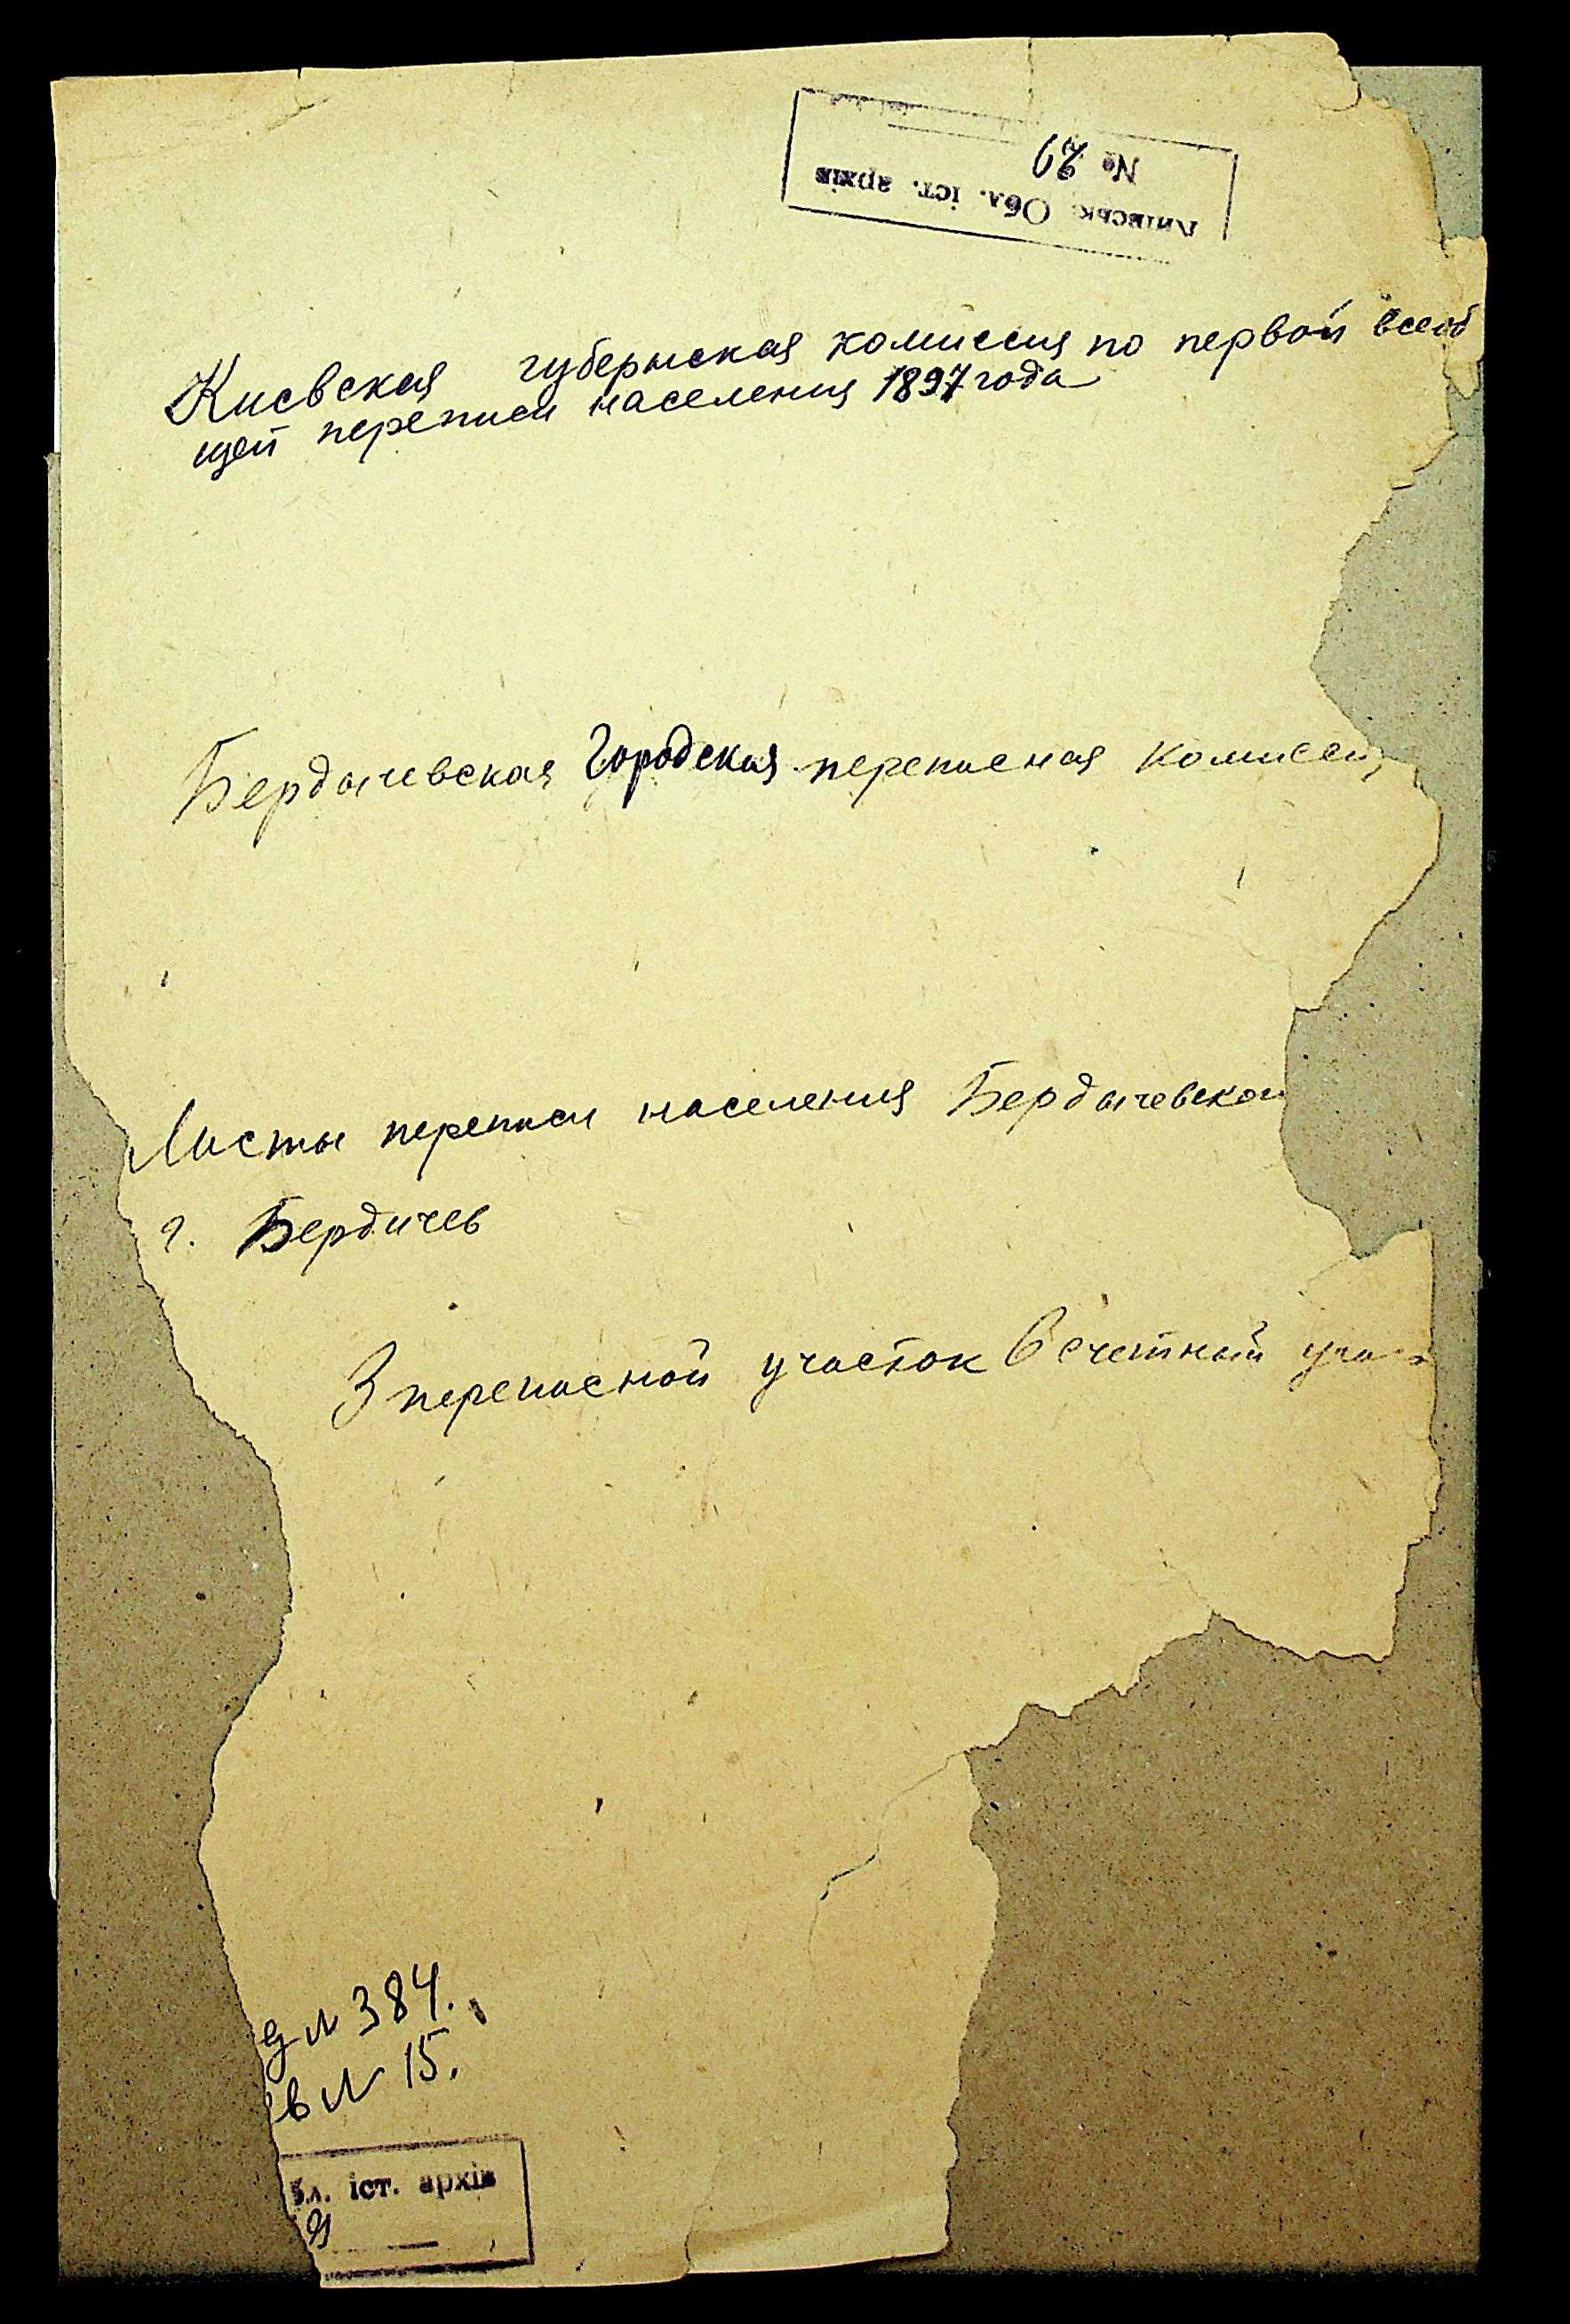 Київськ. Обл. іст. архів
№ 29
Киевская губернская комиссия по первой всеоб
щей переписи населения 1897 года
Бердичевская Городская переписная комисси
Листы переписи населения Бердичевской
г. Бердичев
3 переписной участок 6 счетный учас
д № 384.
в № 15.
бл. іст. архів